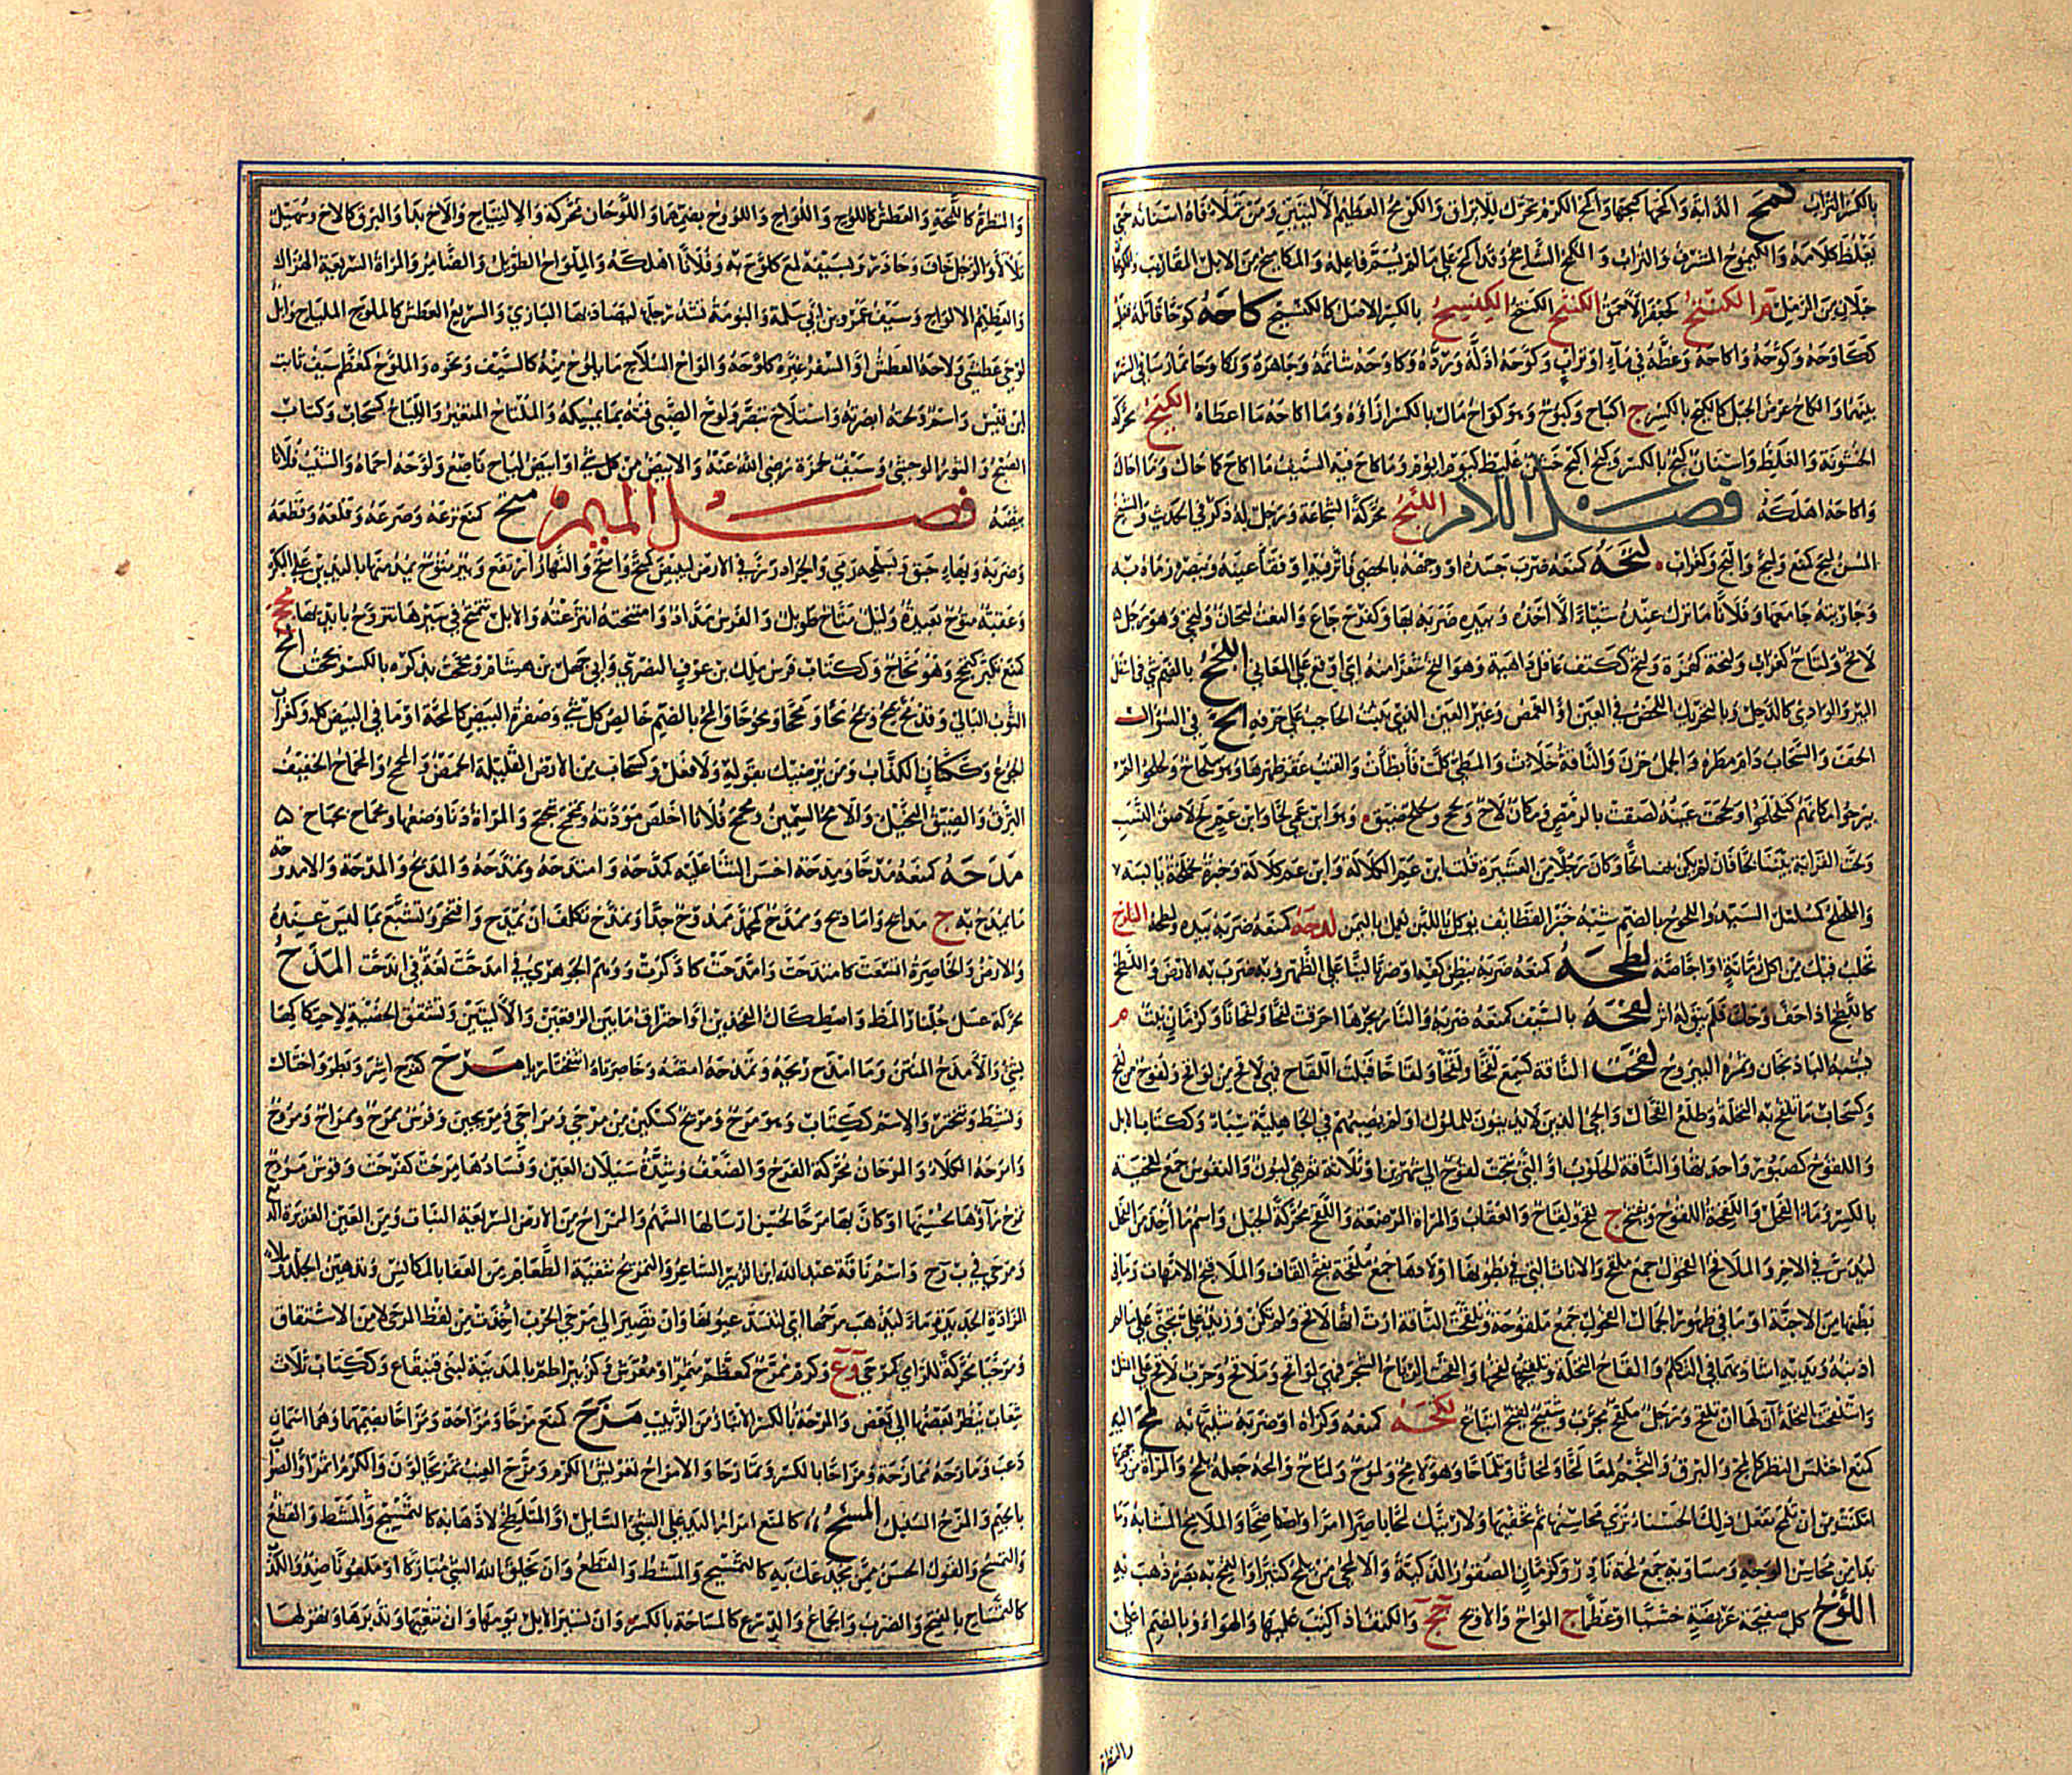 بالكسر التراب كمح الدابة واكمحها كبحها واكمح الكرم تحرك للايراق والكومح العظيم الاليتين ومن تملا فاه اسنانه حتى
يغلظ كلامه والكيموح المشرف والتراب والمكمح الشامخ وقد اكمح على ما لم يسم فاعله والمكاميح من الابل المقاريب والكومحان
حبلان من الرمل م الكنتح كجعفر الاحمق الكنثح الكنتح الكنسيح بالكسر الاصل كالكنسح كاحه كوحا قاتله فغلبه
ككاوحه وكوحه واكاحه وغطه في ماء او تراب وكوحه اذله ورده وكاوحه شاتمه وجاهره وتكاوحا تمارسا في الشر
بينهما والكاح عرض الجبل كالكيح بالكسر ج اكياح وكيوح وهو كواح مال بالكسر ازاؤه وما اكاحه ما اعطاه الكيح محركة
الخشونة والغلظ واسنان كيح بالكسر وكيح اكيح خشن غليظ كيوم ايوم وما كاح فيه السيف ما اكاح كاحاك وما احاك
واكاحه اهلكه فصل اللام اللبح محركة الشجاعة ورجل له ذكر في الحديث والشيخ
المسن لبح كمنع ولبح والبح وكغراب لتحه كمنعه ضرب جسده او وجهه بالحصى فاثر فيه او فقأ عينه وببصره رماه به
وجاريته جامعها وفلانا ما ترك عنده شيئا الا اخذه وبيده ضربه بها وكفرح جاع والنعت لتحان ولتحى وهو رجل
لاتح ولتاح كغراب ولتحة كهمزة ولتح ككتف عاقل داهية وهو التح شعرا منه اي اوقع على المعاني اللجح بالضم شئ في اسفل
البئر والوادي كالدحل وبالتحريك اللخص في العين او الغمص وغير العين الذي ينبت الحاجب على حرفه الح في السؤال
الحف والسحاب دام مطره والجمل حرن والناقة خلأت والمطي كلت فأبطأت والقتب عقر ظهرها وهو ملحاح ولحلحوا لم
يبرحوا مكانهم كتلحلحوا ولححت عينه لصقت بالرمص ومكان لاح ولحح ولحلح ضيق وهو ابن عمي لحا وابن عم لح لاصق النسب
ولحت القرابة بيننا لحا فان لم يكن لحا وكان رجلا من العشيرة قلت ابن عم الكلالة وابن عم كلالة وخبزة لحلحة يابسة
والملحلح كمسلسل السيد واللحوح بالضم شبه خبز القطايف يوكل باللبن يعمل باليمن لدحه كمنعه ضربه بيده ولطحه التلزح
تحلب فيك من اكل رمانة او اجاصة لطحه كمنعه ضربه ببطن كفه او ضربا لينا على الظهر وبه ضرب به الارض واللطح
كاللطخ اذا جف وحك فلم يبق له اثر لفحه بالسيف كمنعه ضربه والنار بحرها احرقت لفحا ولفحانا وكرمان نبت م
يشبه الباذنجان وثمرة اليبروح لقحت الناقة كسمع لقحا ولقحا ولقاحا قبلت اللقاح فهي لاقح من لواقح ولقوح من لقح
وكسحاب ما تلقح به النخلة وطلع الفحال والحي الذين لا يدينون للملوك او لم يصبهم في الجاهلية سباء وككتاب الابل
واللقوح كصبور واحدتها والناقة الحلوب او التي نتجت لقوح الى شهرين او ثلاثة ثم هي لبون والنفوس جمع لقحة
بالكسر وماء الفحل واللقحة اللقوح ويفتح ج لقح ولقاح والعقاب والمرأة المرضعة واللقح محركة الحبل واسم ما أخذ من الفحل
ليدس في الاخر والملاقح الفحول جمع ملقح والاناث التي في بطونها اولادها جمع ملقحة بفتح القاف والملاقيح الامهات وما في
بطونها من الاجنة او ما في ظهور الجمال الفحول جمع ملقوحة وتلقحت الناقة ارت انها لاقح ولم تكن وزيد على تجنى علي ما لم
اذنبه ويديه اشار بهما في التكلم والقاح النخلة وتلقيحها لقحها والقحت الرياح الشجر فهي لواقح وملاقح وحرب لاقح على المثل
واستلقحت النخلة آن لها ان تلقح ورجل ملقح مجرب وشقيح لقيح اتباع لكحه كمنعه وكزه او ضربه شبيها به لمح اليه
كمنع اختلس النظر كالمح والبرق والنجم لمعا لمحا ولمحانا وتلماحا وهو لامح ولموح ولماح والمحه جعله يلمح والمرأة من وجهها
امكنت من ان تلمح تفعل ذلك الحسناء تري محاسنها ثم تخفيها ولارينك لمحا باصرا امرا واضحا والملامح المشابه وما
بدا من محاسن الوجه ومساويه جمع لمحة نادر وكرمان الصقور الذكية والالمحي من يلمح كثيرا والتمح بصره ذهب به
اللوح كل صفيحة عريضة خشبا او عظما ج الواح والاويح جج والكتف اذا كتب عليها والهواء وبالضم اعلى
والنظرة
والنظرة كاللمحة والعطش كاللوح واللواح واللؤوح بضمهما واللوحان محركة والالتياح والاح بدا والبرق كالاح وسهيل
تلالأ والرجل خاف وحاذر وبسيفه لمع كلوح به وفلانا اهلكه والملواح الطويل والضامر والمرأة السريعة الهزال
والعظيم الالواح وسيف عمرو بن ابي سلمة والبومة تشد رجلها ليصاد بها البازي والسريع العطش كالملوح والملياح وابل
لوحى عطشى ولاحه العطش او السفر غيره كلوحه والواح السلاح ما يلوح منه كالسيف ونحوه والملوح كمعظم سيف ثابت
ابن قيس واسم ولحته ابصرته واستلاح تبصر ولوح الصبي قته بما يمسكه والملتاح المتغير واللياح كسحاب وكتاب
الصبح والثور الوحشي وسيف حمزة رضي الله عنه والابيض من كل شئ او ابيض لياح ناصع ولوحه احماه والشيب فلانا
بيضه فصل الميم متح كمنع نزعه وصرعه وقلعه وقطعه
وضربه وبها حبق وبسلحه رمى والجراد رز في الارض ليبيض كمتح وامتح والنهار ارتفع وبئر متوح يمد منها باليدين على البكرة
وعقبة متوح بعيدة وليل متاح طويل والفرس مداد وامتتحته انتزعته والابل تتمتح في سيرها تتروح بايديها مجح
كمنع تكبر كتمجح وهو مجاح وككتاب فرس مالك بن عوف النصري وابي جهل بن هشام ومجحت بذكره بالكسر بجحت المح
الثوب البالي وقد مح يمح ويمح محا ومححا ومحوحا وامح بالضم خالص كل شئ وصفرة البيض كالمحة او ما في البيض كله وكغراب
الجوع وككتان الكذاب ومن يرضيك بقوله ولا فعل وكسحاب من الارض القليلة الحمض والمحمح والمحماح الخفيف
النزق والضيق البخيل والامح السمين ومحمح فلانا اخلص مودته وتمحمح تبحبح والمراة دنا وضعها ومحماح بحباح
مدحه كمنعه مدحا ومدحة احسن الثناء عليه كمدحه وامتدحه وتمدحه والمديح والمدحة والامدوحة
ما يمدح به ج مدايح واماديح وممدح كمحمد ممدوح جدا وتمدح تكلف ان يمدح وافتخر وتشبع بما ليس عنده
والارض والخاصرة اتسعت كامتدحت وامدحت كاذكرت ووهم الجوهري في امدحت لغة في اندحت المذح
محركة عسل جلنار المظ واصطكاك الفخذين او احتراق ما بين الرفغين والاليتين وتشقق الخصية لاحتكاكها
بشئ والامذح المنتن وما امذح ريحه وتمذحه امتصه وخاصرتاه انتفختا ريا مرح كفرح اشر وبطر واختال
ونشط وتبختر والاسم ككتاب وهو مرح ومريح كسكين من مرحى ومراحى ومريحين وفرس ممرح وممراح ومروح
وامرحه الكلاء والمرحان محركة الفرح والضعف وشدة سيلان العين وفسادها مرحت كفرحت وقوس مروح
يمرح رآؤها لحسنها او كأن بها مرحا لحسن ارسالها السهم والممراح من الارض السريعة النبات ومن العين الغزيرة الدمع
ومرحى في ب ر ح واسم ناقة عبد الله ابن الزبير الشاعر والتمريح تنقية الطعام من العفا بالمكانس وتدهين الجلد وملء
المزادة الجديدة ماء ليذهب مرحها اي لتنسد عيونها وان تصير الى مرحى الحرب أخذت من لفظ المرحى لا من الاشتقاق
ومرحيا محركة للرامي كمرحى وع وكرم ممرح كمعظم مثمر او معرش وكزبير اطم بالمدينة لبني قينقاع وككتاب ثلاث
شعاب ينظر بعضها الى بعض والمرحة بالكسر الانبار من الزبيب مزح كمنع مزحا ومزاحة ومزاحا بضمهما وهما اسمان
دعب ومازحه ممازحة ومزاحا بالكسر وتمازحا والامزاح تعريش الكرم ومزح العنب تمزيحا لون والكرم اثمر او الصواب
بالجيم والمزح السنبل المسح كالمنع امرار اليد على الشئ السائل او المتلطخ لاذهابه كالتمسيح والمشط والقطع
والمسح والقول الحسن ممن يخدعك به كالتمسيح والمشط والقطع وان يخلق الله الشئ مباركا او ملعونا ضد والكذب
كالتمساح بالفتح والضرب والجماع والذرع كالمساحة بالكسر وان تسير الابل يومها وان تتعبها وتدبرها وتهزلها